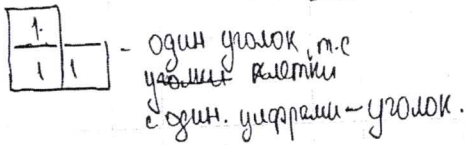 1.
1 1
- один уголок, т.е
уголки клетки
с один. цифрами - уголок.